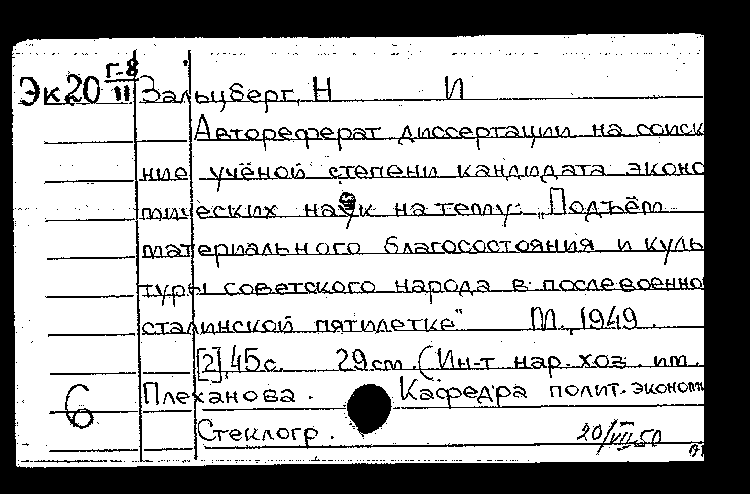 Эк20 Г-8/II Зальцберг, Н И
Автореферат диссертации на соиск
ние учёной степени кандидата эконо
мических наук на тему: „Подъём
материального благосостояния и куль
туры советского народа в послевоенно
сталинской пятилетке" М., 1949.
[2], 45 с. 29 см. (Ин-т нар. хоз. им.
6 Плеханова. Кафедра полит. эконом
Стеклогр. 20/VII 50